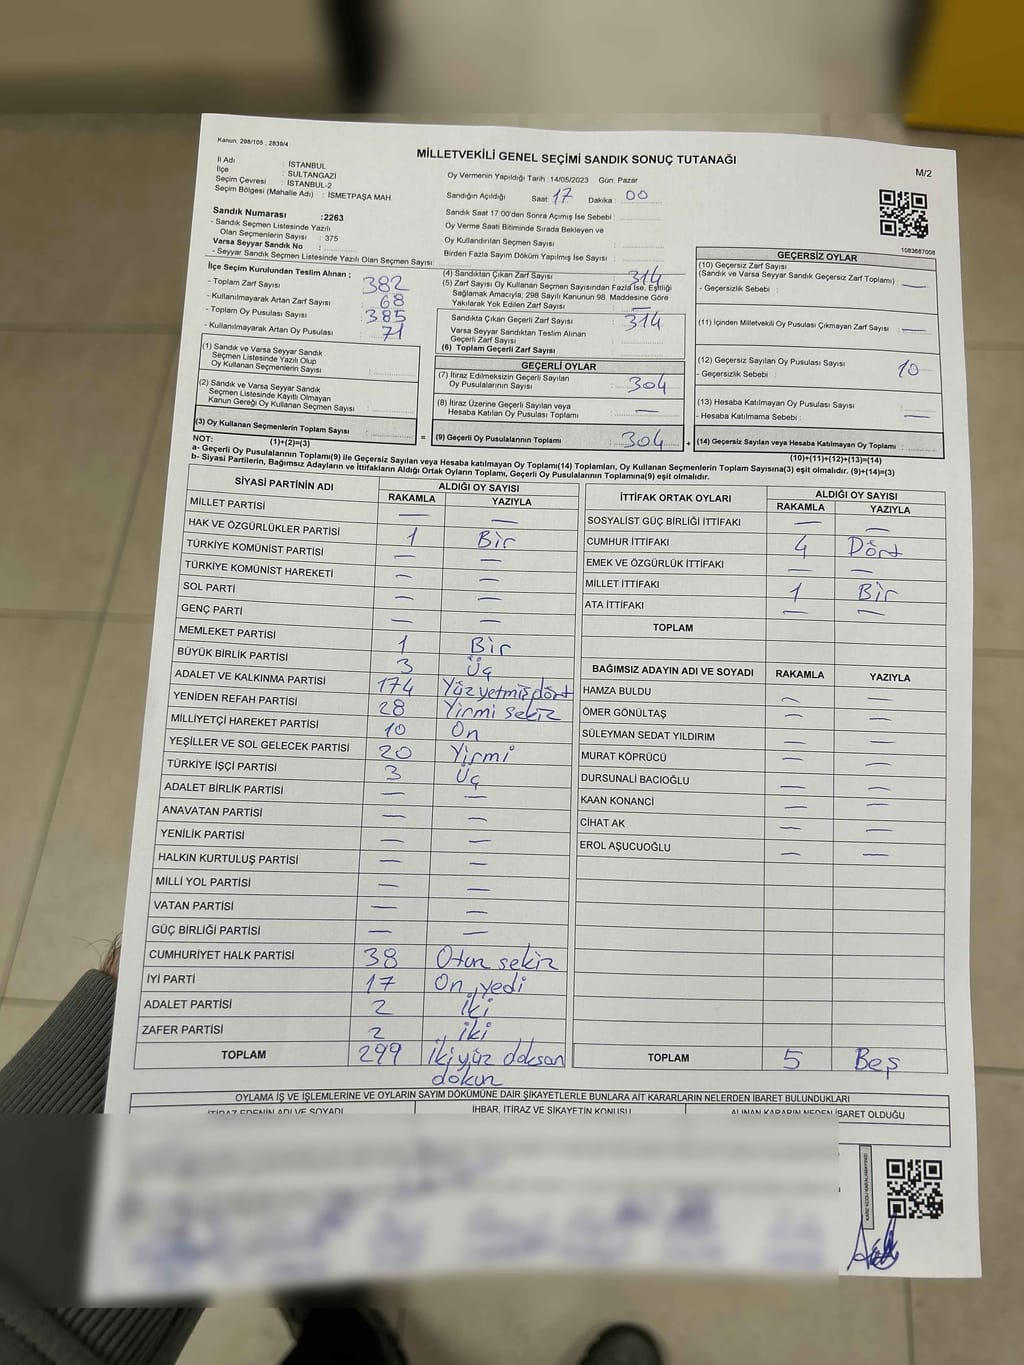 Kanun: 298/105 , 2839/4
MİLLETVEKİLİ GENEL SEÇİMİ SANDIK SONUÇ TUTANAĞI
M/2
İl Adı : İSTANBUL
İlçe : SULTANGAZİ
Seçim Çevresi : İSTANBUL-2
Seçim Bölgesi (Mahalle Adı) : İSMETPAŞA MAH.
Oy Vermenin Yapıldığı Tarih : 14/05/2023 Gün: Pazar
Sandığın Açıldığı Saat: 17 Dakika : 00
Sandık Saat 17:00'den Sonra Açılmış İse Sebebi :
Oy Verme Saati Bitiminde Sırada Bekleyen ve
Oy Kullandırılan Seçmen Sayısı
Birden Fazla Sayım Döküm Yapılmış İse Sayısı :
1083687008
Sandık Numarası : 2263
- Sandık Seçmen Listesinde Yazılı
Olan Seçmenlerin Sayısı : 375
Varsa Seyyar Sandık No :
- Seyyar Sandık Seçmen Listesinde Yazılı Olan Seçmen Sayısı:
İlçe Seçim Kurulundan Teslim Alınan ;
- Toplam Zarf Sayısı : 382
- Kullanılmayarak Artan Zarf Sayısı : 68
- Toplam Oy Pusulası Sayısı : 385
- Kullanılmayarak Artan Oy Pusulası : 71
(1) Sandık ve Varsa Seyyar Sandık
Seçmen Listesinde Yazılı Olup
Oy Kullanan Seçmenlerin Sayısı :
(2) Sandık ve Varsa Seyyar Sandık
Seçmen Listesinde Kayıtlı Olmayan
Kanun Gereği Oy Kullanan Seçmen Sayısı :
(3) Oy Kullanan Seçmenlerin Toplam Sayısı :
(1)+(2)=(3)
(4) Sandıktan Çıkan Zarf Sayısı : 314
(5) Zarf Sayısı Oy Kullanan Seçmen Sayısından Fazla İse, Eşitliği
Sağlamak Amacıyla, 298 Sayılı Kanunun 98. Maddesine Göre
Yakılarak Yok Edilen Zarf Sayısı : —
Sandıkta Çıkan Geçerli Zarf Sayısı : 314
Varsa Seyyar Sandıktan Teslim Alınan
Geçerli Zarf Sayısı :
(6) Toplam Geçerli Zarf Sayısı :
GEÇERLİ OYLAR
(7) İtiraz Edilmeksizin Geçerli Sayılan
Oy Pusulalarının Sayısı : 304
(8) İtiraz Üzerine Geçerli Sayılan veya
Hesaba Katılan Oy Pusulası Toplamı : —
= (9) Geçerli Oy Pusulalarının Toplamı : 304 +
GEÇERSİZ OYLAR
(10) Geçersiz Zarf Sayısı
(Sandık ve Varsa Seyyar Sandık Geçersiz Zarf Toplamı) : —
- Geçersizlik Sebebi :
(11) İçinden Milletvekili Oy Pusulası Çıkmayan Zarf Sayısı : —
(12) Geçersiz Sayılan Oy Pusulası Sayısı : 10
- Geçersizlik Sebebi :
(13) Hesaba Katılmayan Oy Pusulası Sayısı :
- Hesaba Katılmama Sebebi : —
(14) Geçersiz Sayılan veya Hesaba Katılmayan Oy Toplamı :
(10)+(11)+(12)+(13)=(14)
NOT:
a- Geçerli Oy Pusulalarının Toplamı(9) ile Geçersiz Sayılan veya Hesaba katılmayan Oy Toplamı(14) Toplamları, Oy Kullanan Seçmenlerin Toplam Sayısına(3) eşit olmalıdır. (9)+(14)=(3)
b- Siyasi Partilerin, Bağımsız Adayların ve İttifakların Aldığı Ortak Oyların Toplamı, Geçerli Oy Pusulalarının Toplamına(9) eşit olmalıdır.
SİYASİ PARTİNİN ADI ALDIĞI OY SAYISI
RAKAMLA YAZIYLA
MİLLET PARTİSİ — —
HAK VE ÖZGÜRLÜKLER PARTİSİ 1 Bir
TÜRKİYE KOMÜNİST PARTİSİ — —
TÜRKİYE KOMÜNİST HAREKETİ — —
SOL PARTİ — —
GENÇ PARTİ — —
MEMLEKET PARTİSİ 1 Bir
BÜYÜK BİRLİK PARTİSİ 3 Üç
ADALET VE KALKINMA PARTİSİ 174 Yüz yetmiş dört
YENİDEN REFAH PARTİSİ 28 Yirmi sekiz
MİLLİYETÇİ HAREKET PARTİSİ 10 On
YEŞİLLER VE SOL GELECEK PARTİSİ 20 Yirmi
TÜRKİYE İŞÇİ PARTİSİ 3 Üç
ADALET BİRLİK PARTİSİ — —
ANAVATAN PARTİSİ — —
YENİLİK PARTİSİ — —
HALKIN KURTULUŞ PARTİSİ — —
MİLLİ YOL PARTİSİ — —
VATAN PARTİSİ — —
GÜÇ BİRLİĞİ PARTİSİ — —
CUMHURİYET HALK PARTİSİ 38 Otuz sekiz
İYİ PARTİ 17 On yedi
ADALET PARTİSİ 2 iki
ZAFER PARTİSİ 2 iki
TOPLAM 299 İkiyüz doksan
dokuz
İTTİFAK ORTAK OYLARI ALDIĞI OY SAYISI
RAKAMLA YAZIYLA
SOSYALİST GÜÇ BİRLİĞİ İTTİFAKI — —
CUMHUR İTTİFAKI 4 Dört
EMEK VE ÖZGÜRLÜK İTTİFAKI — —
MİLLET İTTİFAKI 1 Bir
ATA İTTİFAKI — —
TOPLAM
BAĞIMSIZ ADAYIN ADI VE SOYADI RAKAMLA YAZIYLA
HAMZA BULDU — —
ÖMER GÖNÜLTAŞ — —
SÜLEYMAN SEDAT YILDIRIM — —
MURAT KÖPRÜCÜ — —
DURSUNALİ BACIOĞLU — —
KAAN KONANCİ — —
CİHAT AK — —
EROL AŞUCUOĞLU — —
TOPLAM 5 Beş
OYLAMA İŞ VE İŞLEMLERİNE VE OYLARIN SAYIM DÖKÜMÜNE DAİR ŞİKAYETLERLE BUNLARA AİT KARARLARIN NELERDEN İBARET BULUNDUKLARI
İTİRAZ EDENİN ADI VE SOYADI İHBAR, İTİRAZ VE ŞİKAYETİN KONUSU ALINAN KARARIN NEDEN İBARET OLDUĞU